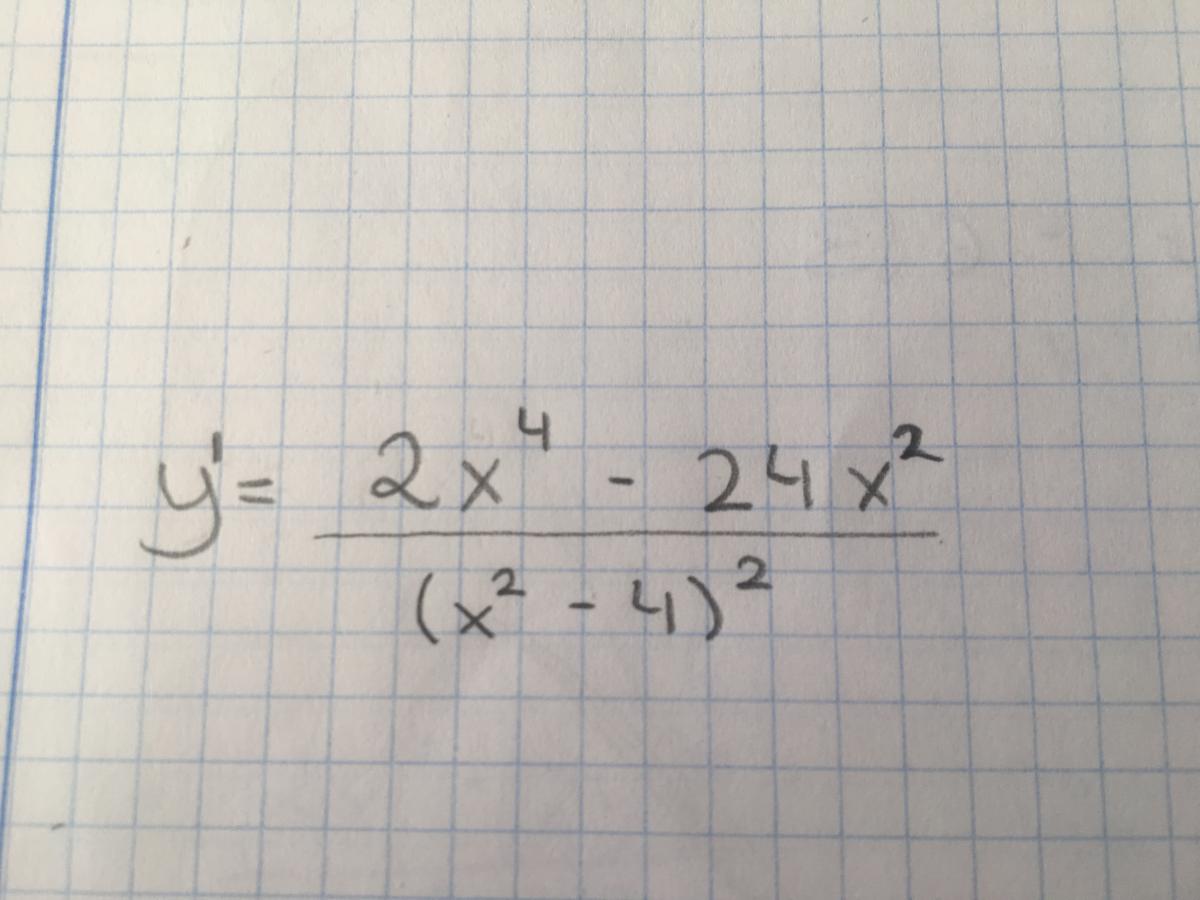 y' = \frac{2x^4 - 24x^2}{(x^2 - 4)^2}